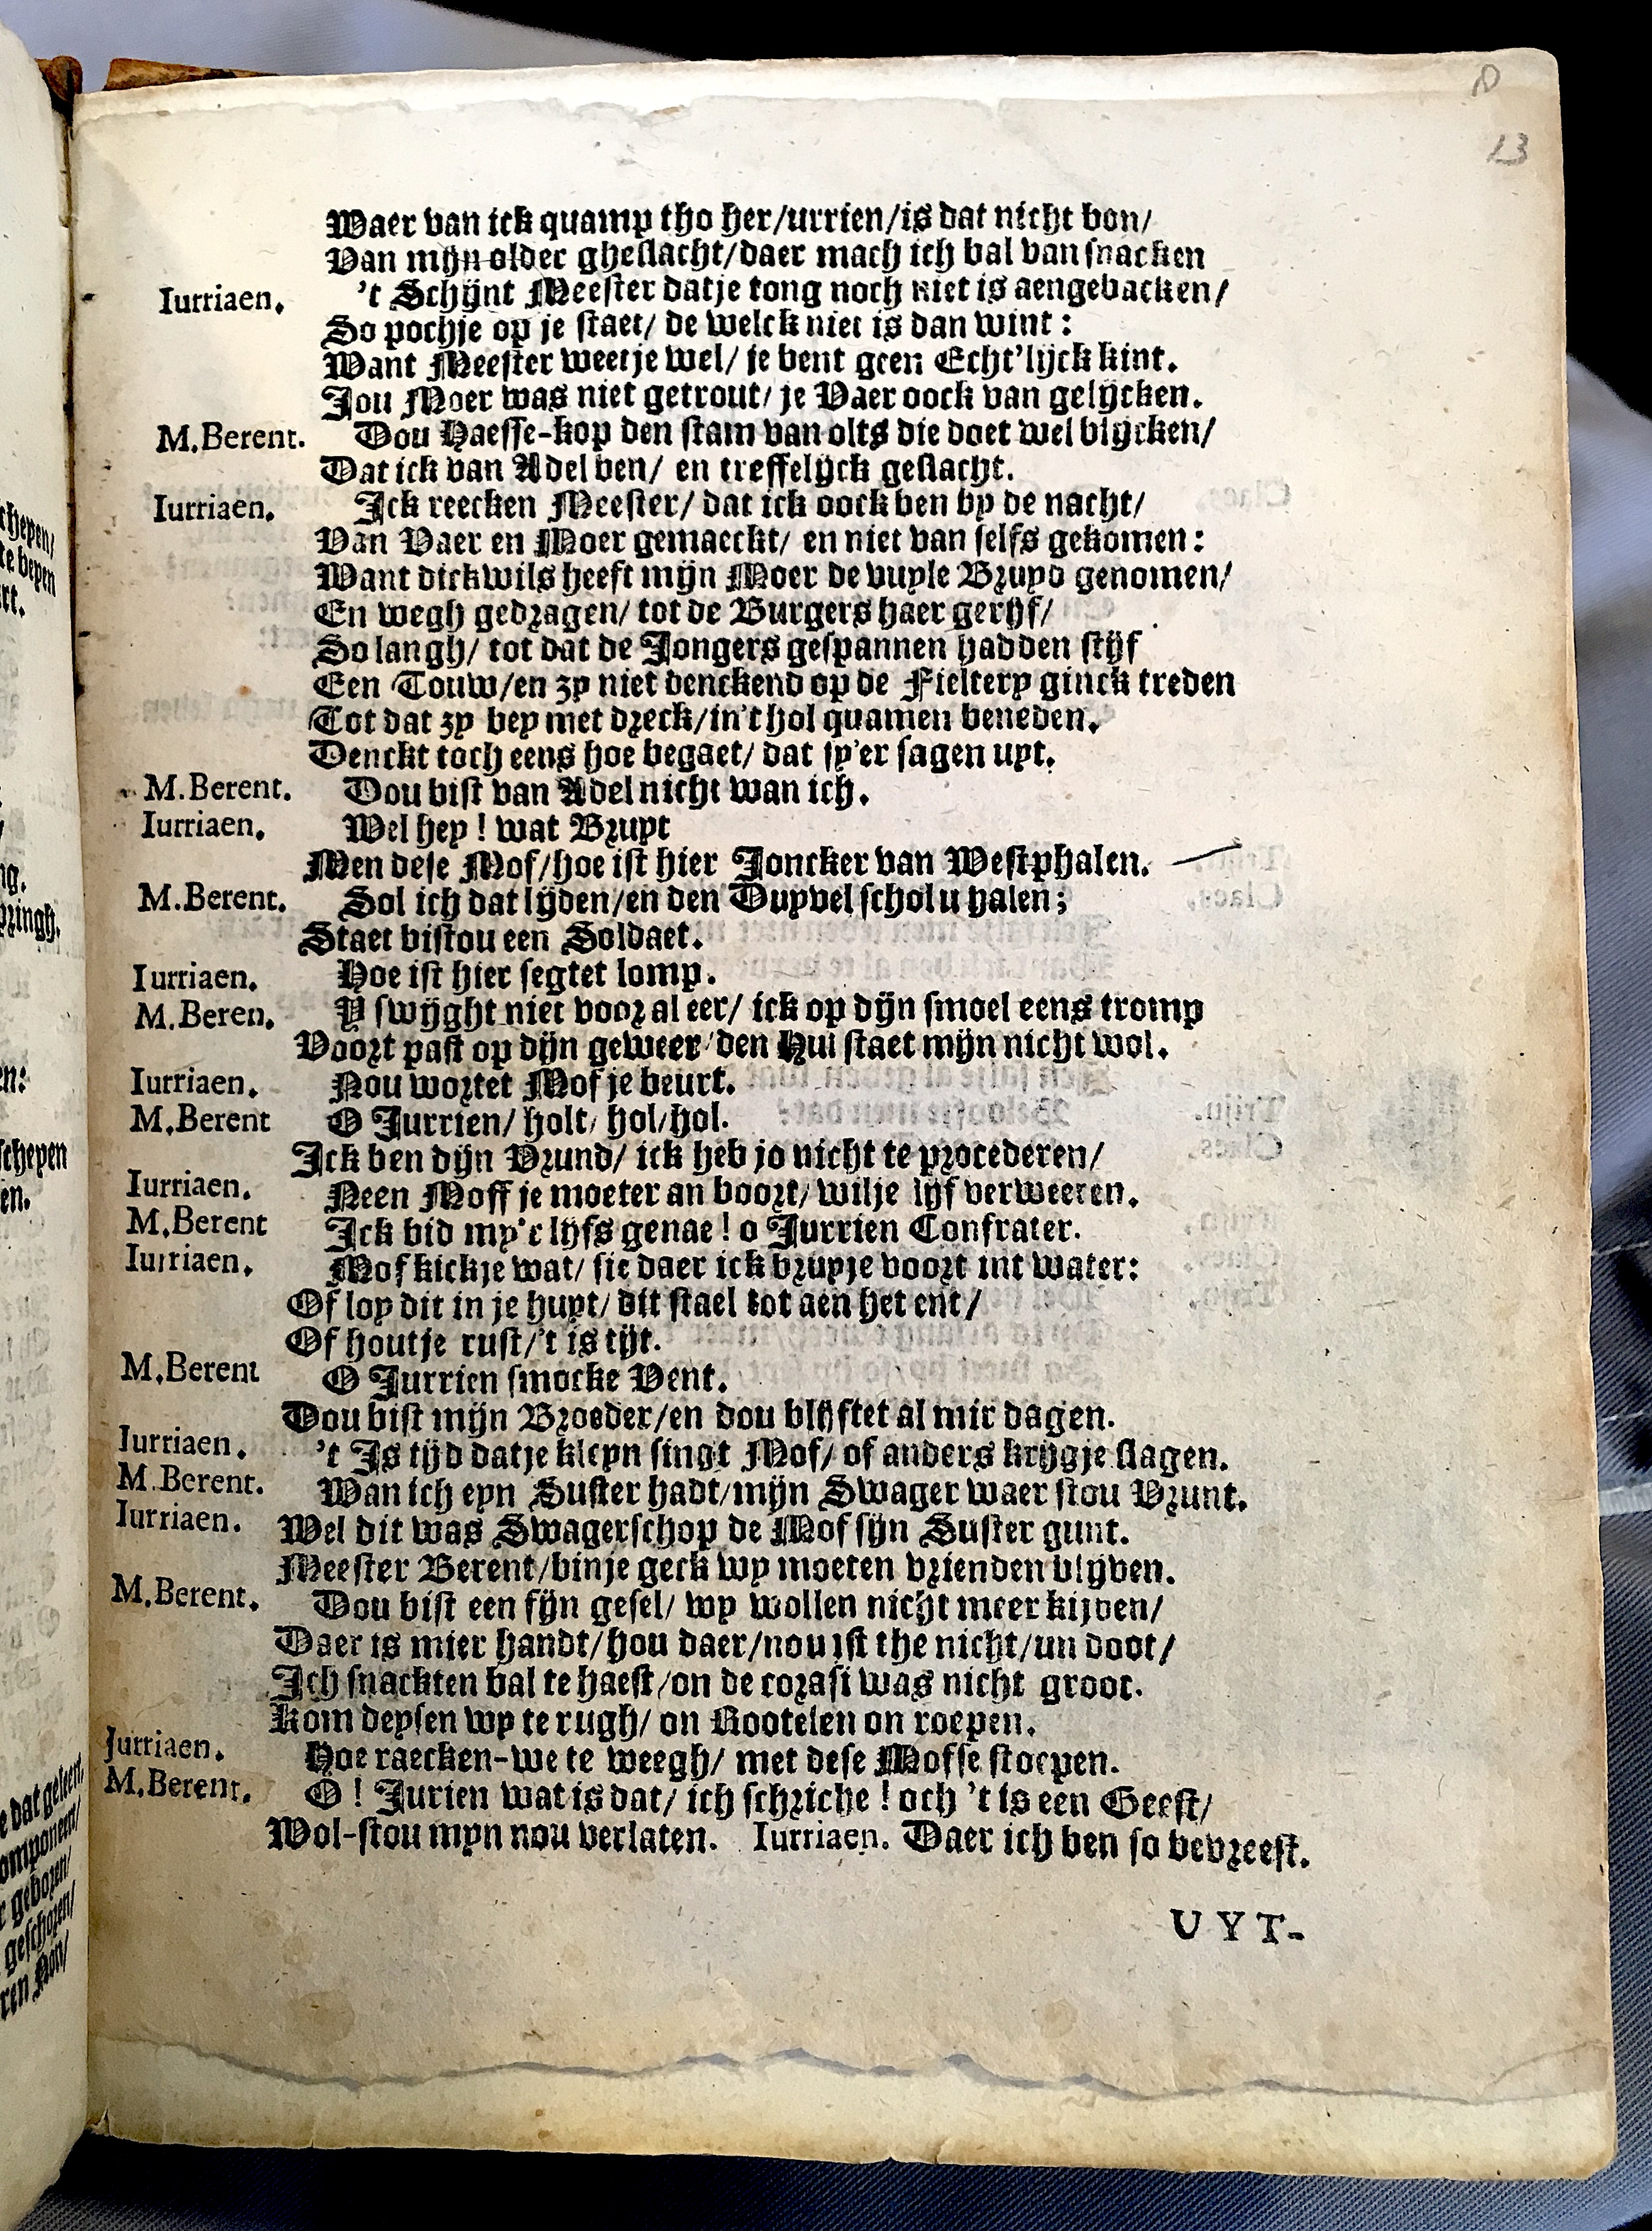 13
Waer van ick quamp tho her/urrien/is dat nicht bon/
Van mijn older gheslacht/daer mach ich bal van snacken
Iurriaen. 't Schijnt Meester datje tong noch niet is aengebacken/
So pochje op je staet/ de welck niet is dan wint:
Want Meester weetje wel/ je bent geen Echt'lijck kint.
Jou Moer was niet getrout/ je Vaer oock van gelijcken.
M.Berent. Dou Haesse-kop den stam van olts die doet wel blijcken/
Dat ick van Adel ben/ en treffelijck geslacht.
Iurriaen. Ick reecken Meester/ dat ick oock ben by de nacht/
Van Vaer en Moer gemaeckt/ en niet van selfs gekomen:
Want dickwils heeft mijn Moer de vuyle Bruyd genomen/
En wegh gedragen/ tot de Burgers haer gerijf/
So langh/ tot dat de Jongers gespannen hadden stijf
Een Touw/en zy niet denckend op de Fieltery ginck treden
Tot dat zy bey met dreck/in't hol quamen beneden.
Denckt toch eens hoe begaet/ dat sy'er sagen uyt.
M.Berent. Dou bist van Adel nicht wan ich.
Iurriaen. Wel hey! wat Bruyt
Men dese Mof/hoe ist hier Joncker van Westphalen.
M.Berent. Sol ich dat lijden/en den Duyvel schol u halen;
Staet bistou een Soldaet.
Iurriaen. Hoe ist hier segtet lomp.
M.Beren. Y swijght niet voor al eer/ ick op dijn smoel eens tromp
Voort past op dijn geweer/den Hui staet mijn nicht wol.
Iurriaen. Nou wortet Mof je beurt.
M.Berent O Jurrien/ holt/ hol/hol.
Ick ben dijn Vrund/ ick heb jo nicht te procederen/
Iurriaen. Neen Moff je moeter an boort/ wilje lijf verweeren.
M.Berent Ick bid my't lijfs genae! o Jurrien Confrater.
Iurriaen. Mof kickje wat/ sie daer ick bruyje voort int water:
Of loy dit in je huyt/ dit stael tot aen het ent/
Of houtje rust/'t is tijt.
M.Berent O Jurrien smocke Vent.
Dou bist mijn Broeder/en dou blijftet al mir dagen.
Iurriaen. 't Is tijd datje kleyn singt Mof/ of anders krijgje slagen.
M.Berent. Wan ich eyn Suster hadt/mijn Swager waer stou Vrunt.
Iurriaen. Wel dit was Swagerschop de Mof sijn Suster gunt.
Meester Berent/binje geck wy moeten vrienden blijven.
M.Berent. Dou bist een fijn gesel/ wy wollen nicht meer kijven/
Daer is mier handt/hou daer/nou ist the nicht/un doot/
Ich snackten bal te haest/on de corasi was nicht groot.
Kom deysen wy te rugh/ on Rootelen on roepen.
Jurriaen. Hoe raecken-we te weegh/ met dese Mofse stoepen.
M.Berent. O! Jurien wat is dat/ ich schriche! och 't is een Geest/
Wol-stou myn nou verlaten. Iurriaen. Daer ich ben so bevreest.
UYT-